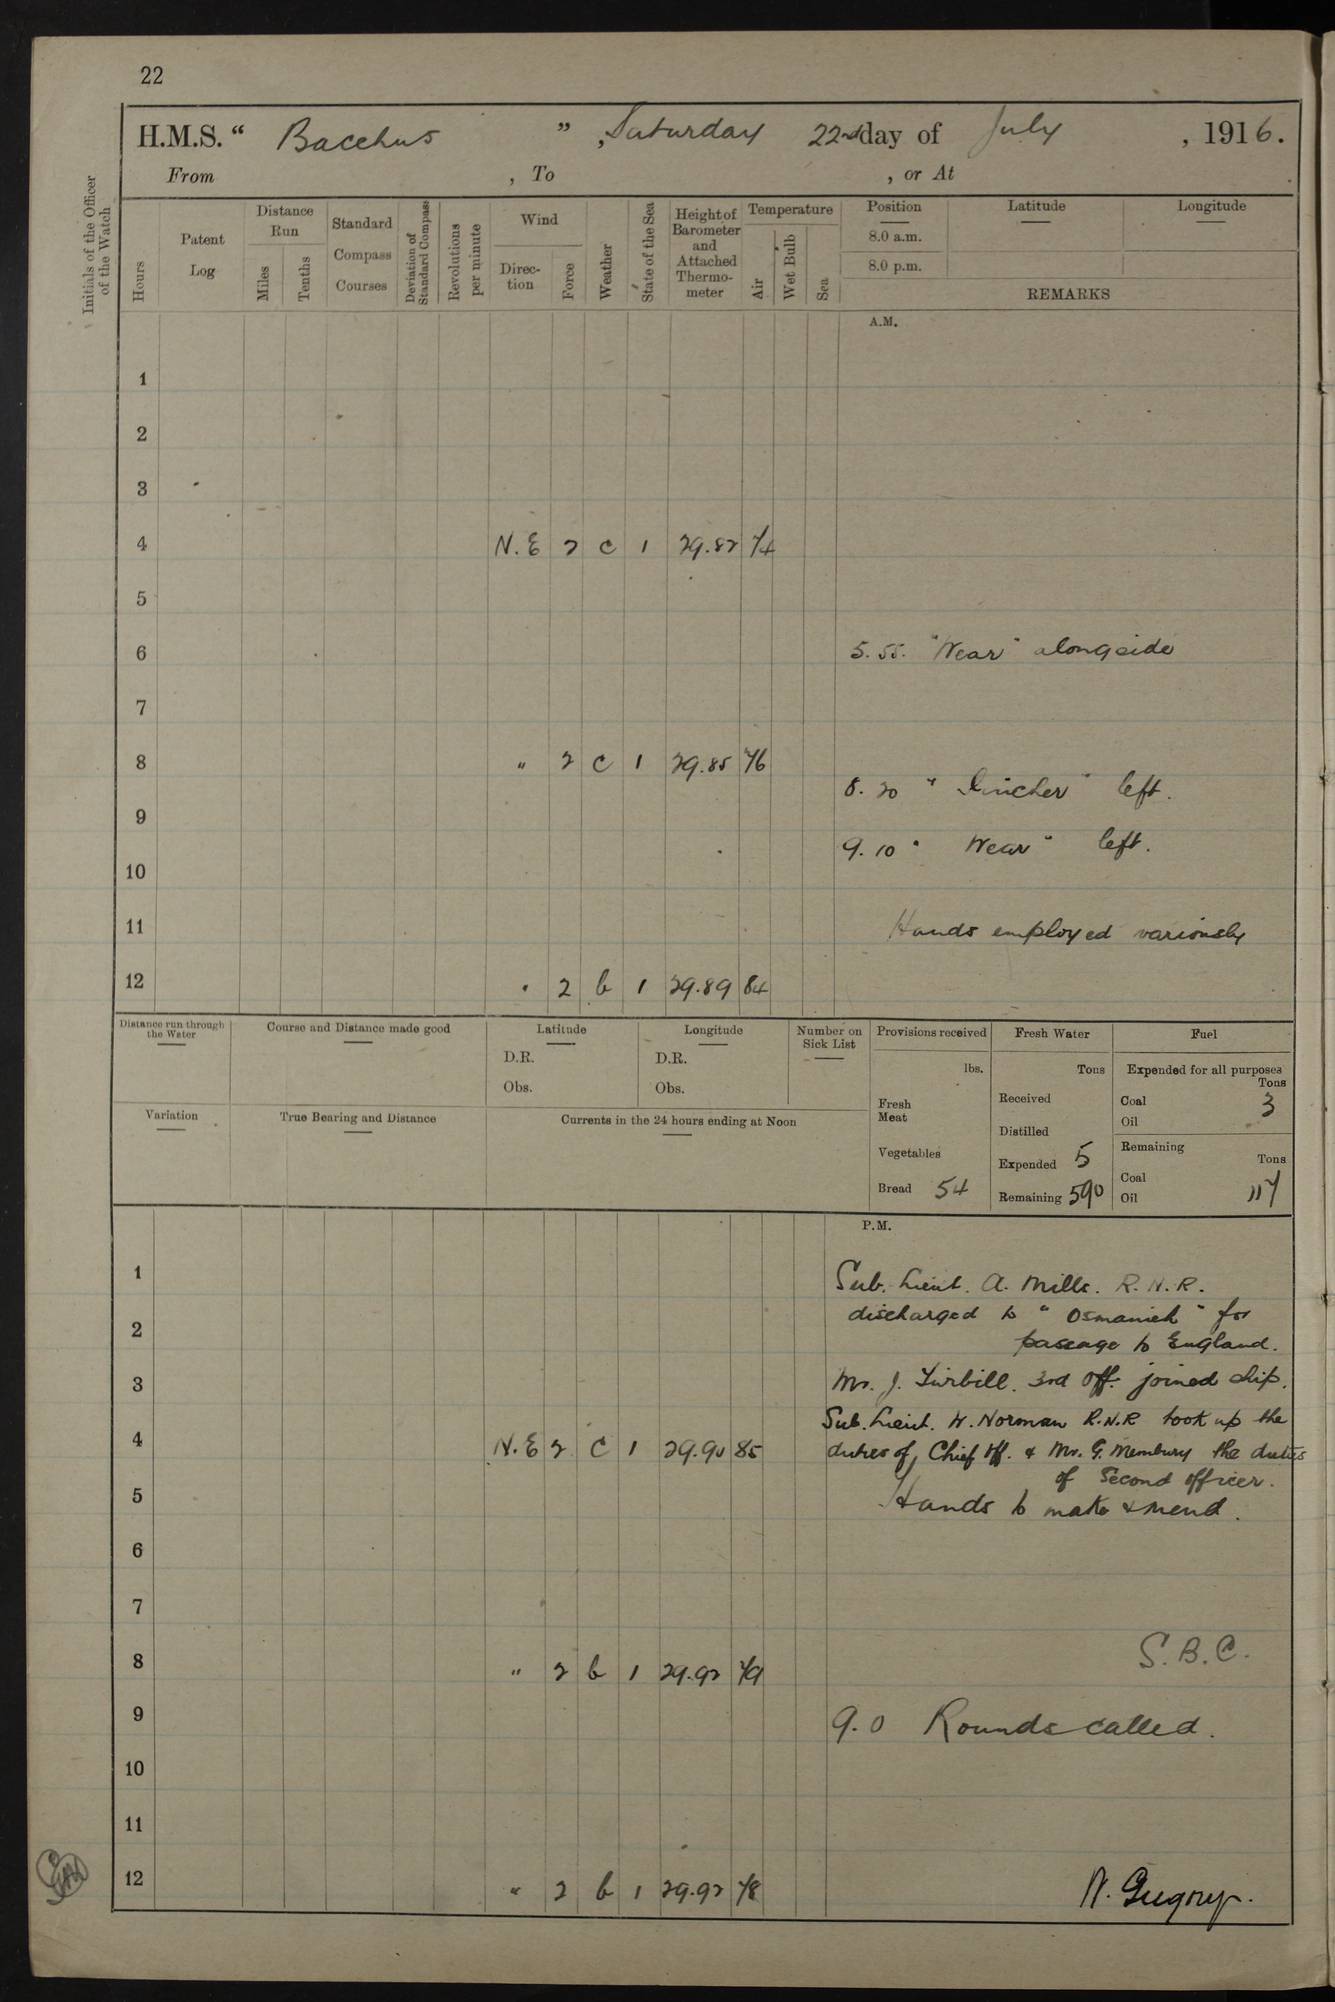 22
H.M.S. “ Bacchus ” , Saturday 22nd day of July , 1916.
From , To , or At
Initials of the Officer of the Watch
Hours
Patent Log
Distance Run
Miles
Tenths
Standard Compass Courses
Deviation of Standard Compass
Revolutions per minute
Wind
Direction
Force
Weather
State of the Sea
Height of Barometer and Attached Thermometer
Temperature
Air
Wet Bulb
Sea
Position Latitude Longitude
8.0 a.m.
8.0 p.m.
REMARKS
A.M.
1
2
3
4 N.E 2 c 1 29.82 74
5
6 5.55. "Wear" alongside
7
8 " 2 c 1 29.85 76
8.20 " " left.
9
9.10 " Wear " left.
10
11 Hands employed variously
12 " 2 b 1 29.89 84
Distance run through the Water
Course and Distance made good
Latitude
D.R.
Obs.
Longitude
D.R.
Obs.
Number on Sick List
Variation
True Bearing and Distance
Currents in the 24 hours ending at Noon
Provisions received
lbs.
Fresh Meat
Vegetables
Bread 54
Fresh Water
Tons
Received
Distilled
Expended 5
Remaining 590
Fuel
Expended for all purposes
Tons
Coal 3
Oil
Remaining
Tons
Coal
Oil 117
P.M.
1 Sub. Lieut. A. Mills. R.N.R.
discharged to "Osmanieh" for
2 passage to England.
3 Mr. J. 3rd Off. joined ship.
Sub. Lieut. W. Norman R.N.R took up the
4 N.E 2 c 1 29.90 85 duties of Chief Off. & Mr. G. Membury the duties
of Second officer.
5 Hands to make & mend.
6
7
S.B.C.
8 " 2 b 1 29.92 79
9 9.0 Rounds called.
10
11
12 " 2 b 1 29.92 78 N. Gregory.